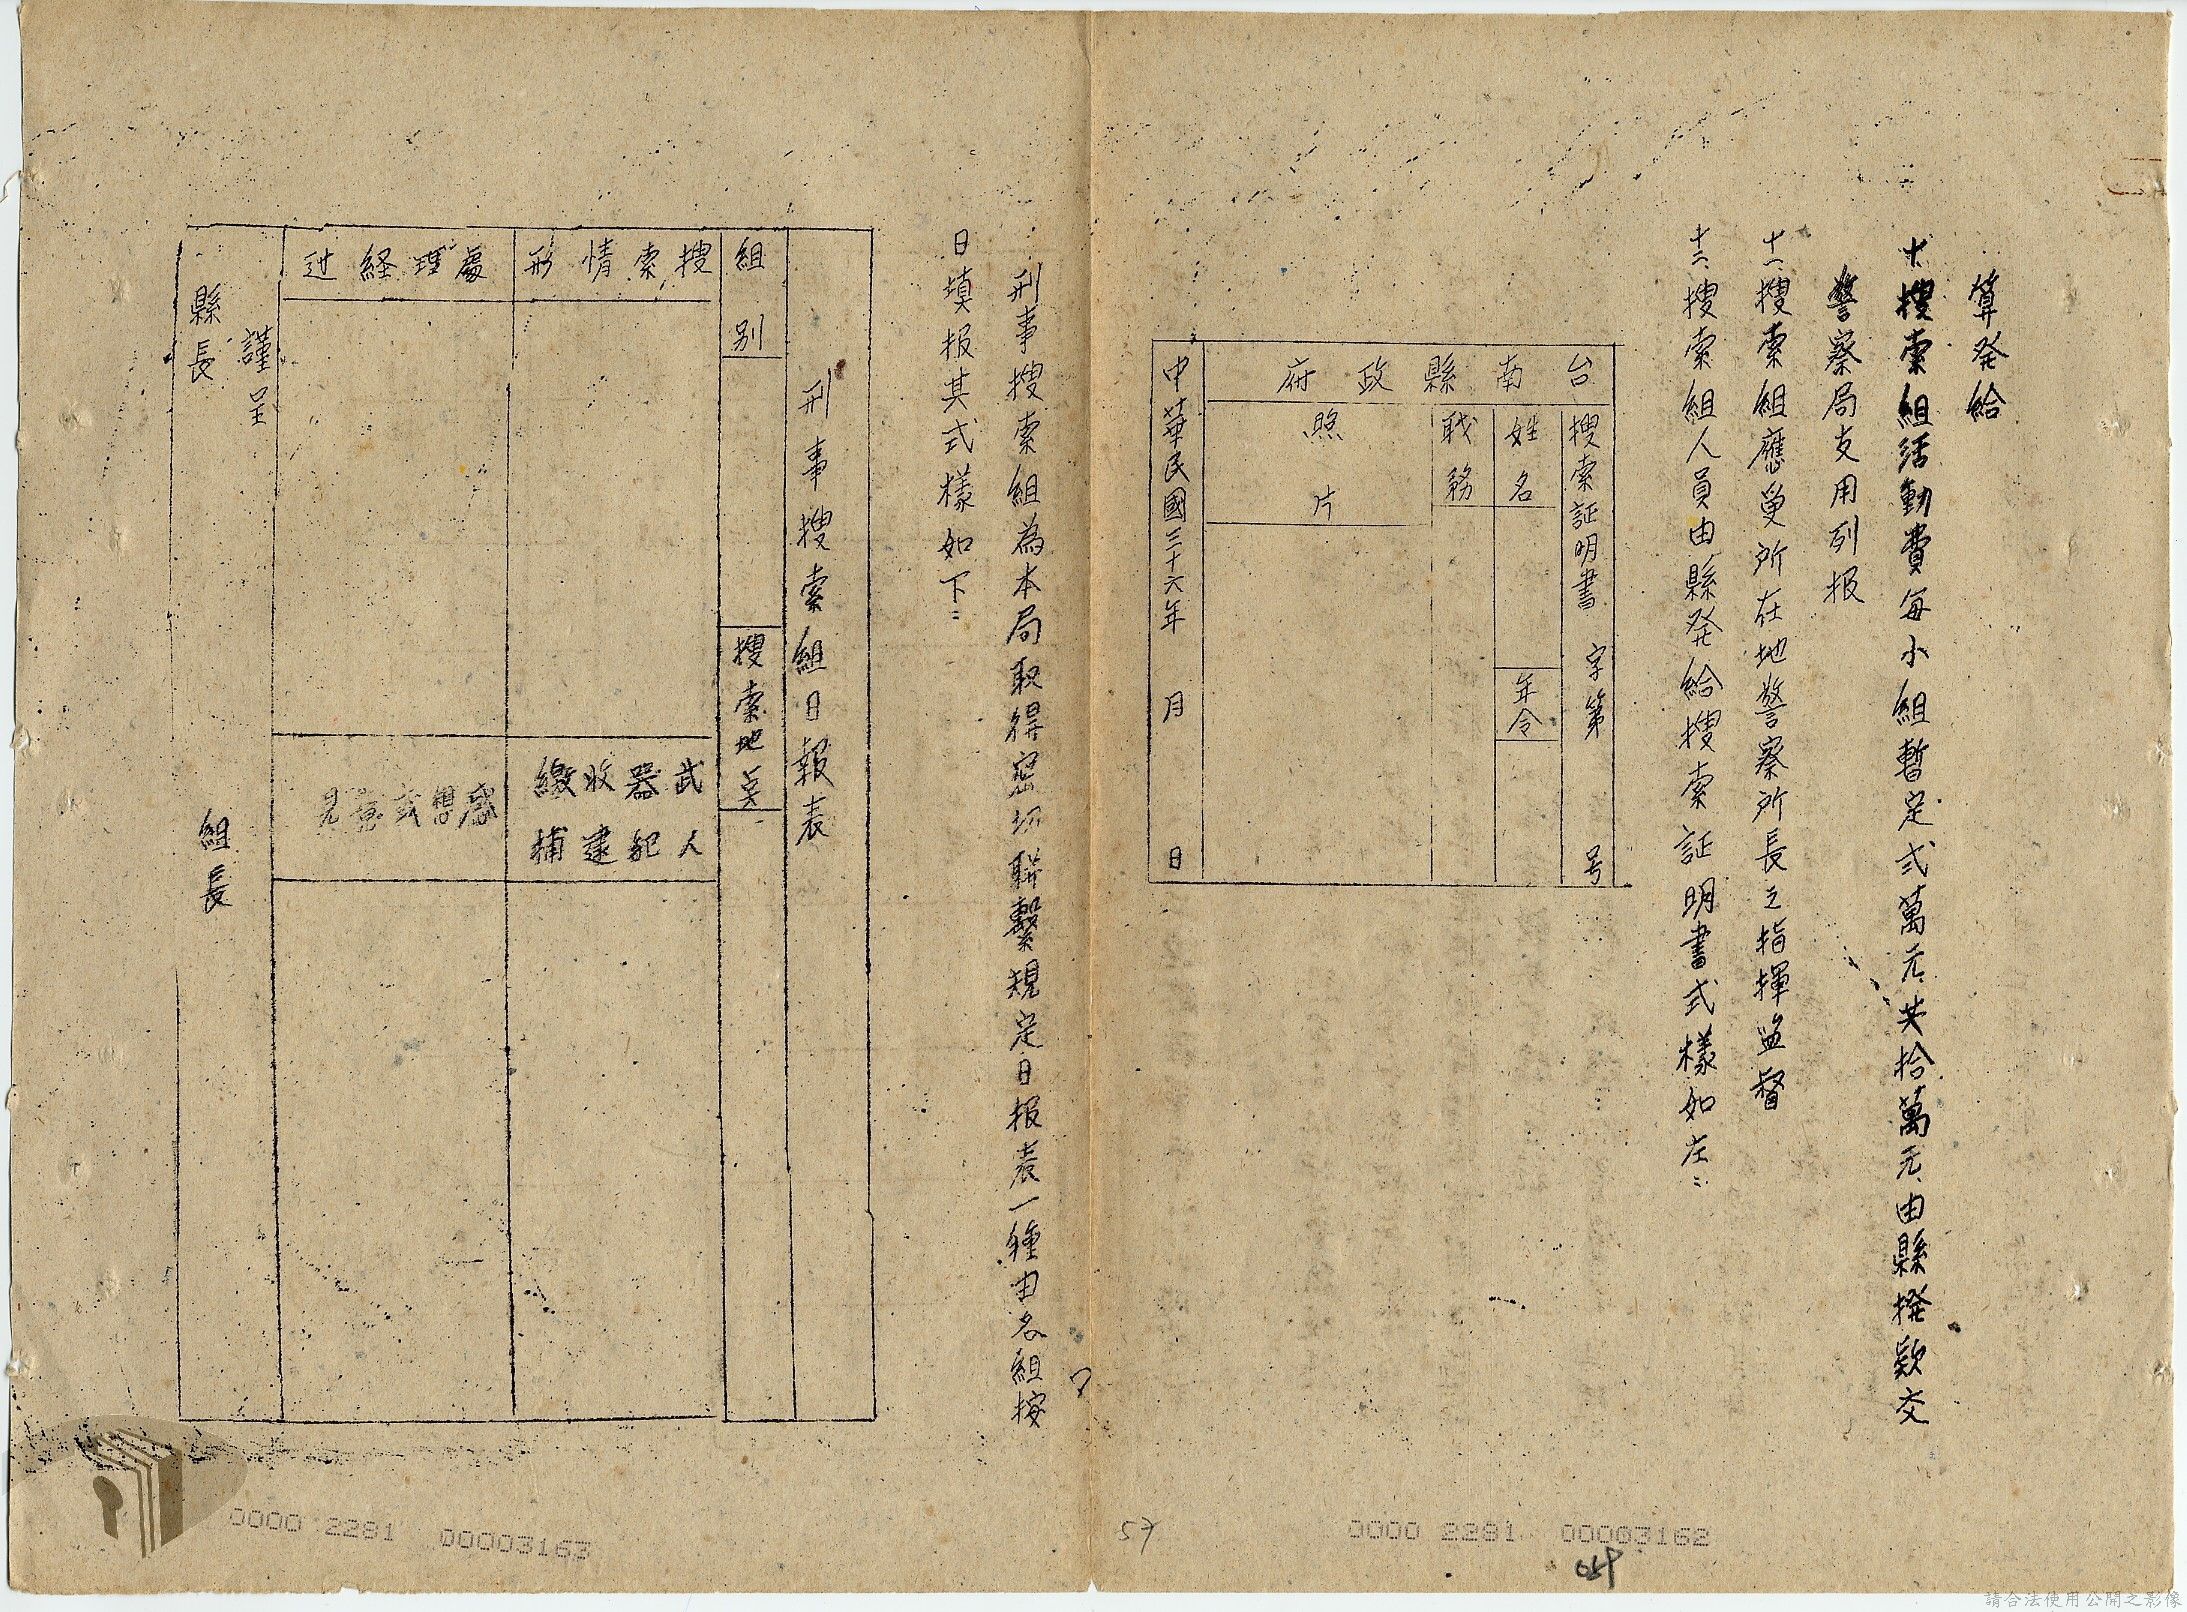 算発給
十、搜索組活動費每小組暫定弍萬元、共拾萬元、由縣撥欵交
警察局支用列报
十一、搜索組應受所在地警察所長之指揮監督
十二、搜索組人員由縣発給搜索証明書式樣如左：
台南縣政府
搜索証明書　字第　号
姓名
年令
职務
照片
中華民國三十六年　月　日
刑事搜索組為本局取得密切聯繫規定日报表一種由各組按
日填报其式樣如下：
刑事搜索組日報表
組別
搜索地点
搜索情形
武器收繳
人犯逮捕
處理経过
感想或意見
謹呈
縣長
組長
57
0000 2281 00003162
0000 2281 00003163
請合法使用公開之影像